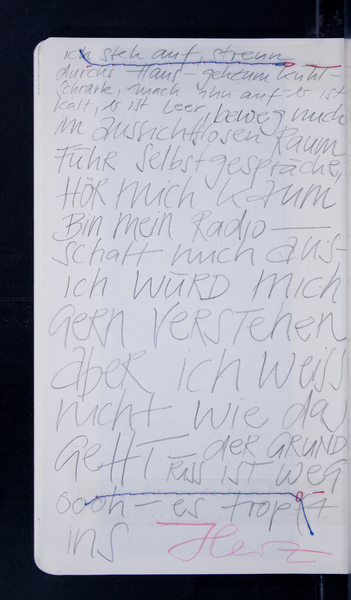 ich steh auf, streun
durchs Haus – geh zum Kühl-
schrank, mach ihn auf – er ist
kalt, er ist leer, beweg mich
im aussichtslosen Raum
Führ Selbstgespräche,
Hör mich kaum
Bin mein Radio –
Schalt mich aus –
ich WÜRD mich
GERN VERSTEHEN
aber ich weiss
nicht wie das
GEHT – DER GRUND
RISS IST WEG
oooh – es tropft
ins Herz